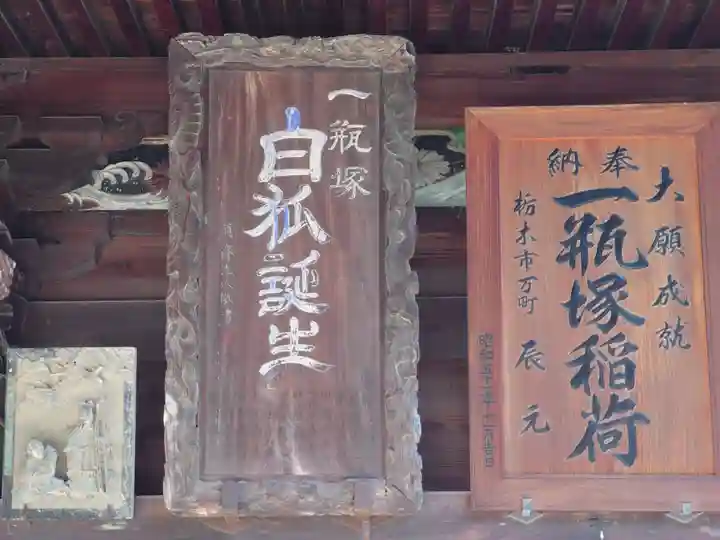 奉納
大願成就
一瓶塚稲荷
栃木市万町
辰元
一瓶塚
白狐誕生